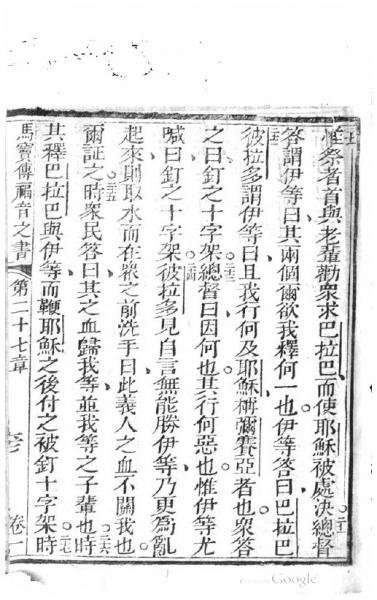 惟祭者首與老輩勸衆求巴拉巴而使耶穌被處決總督
答謂伊等曰其兩個爾欲我釋何一也伊等答曰巴拉巴
彼拉多謂伊等曰且我行何及耶穌稱彌賽亞者也衆答
之曰釘之十字架總督曰因何也其行何惡也惟伊等尤
喊曰釘之十字架彼拉多見自言無能勝伊等乃更爲亂
起來則取水而在衆之前洗手曰此義人之血不關我也
爾証之時衆民答曰其之血歸我等並我等之子輩也時
其釋巴拉巴與伊等而鞭耶穌之後付之被釘十字架時
馬寶傳福音之書 第二十七章 卷一
Google